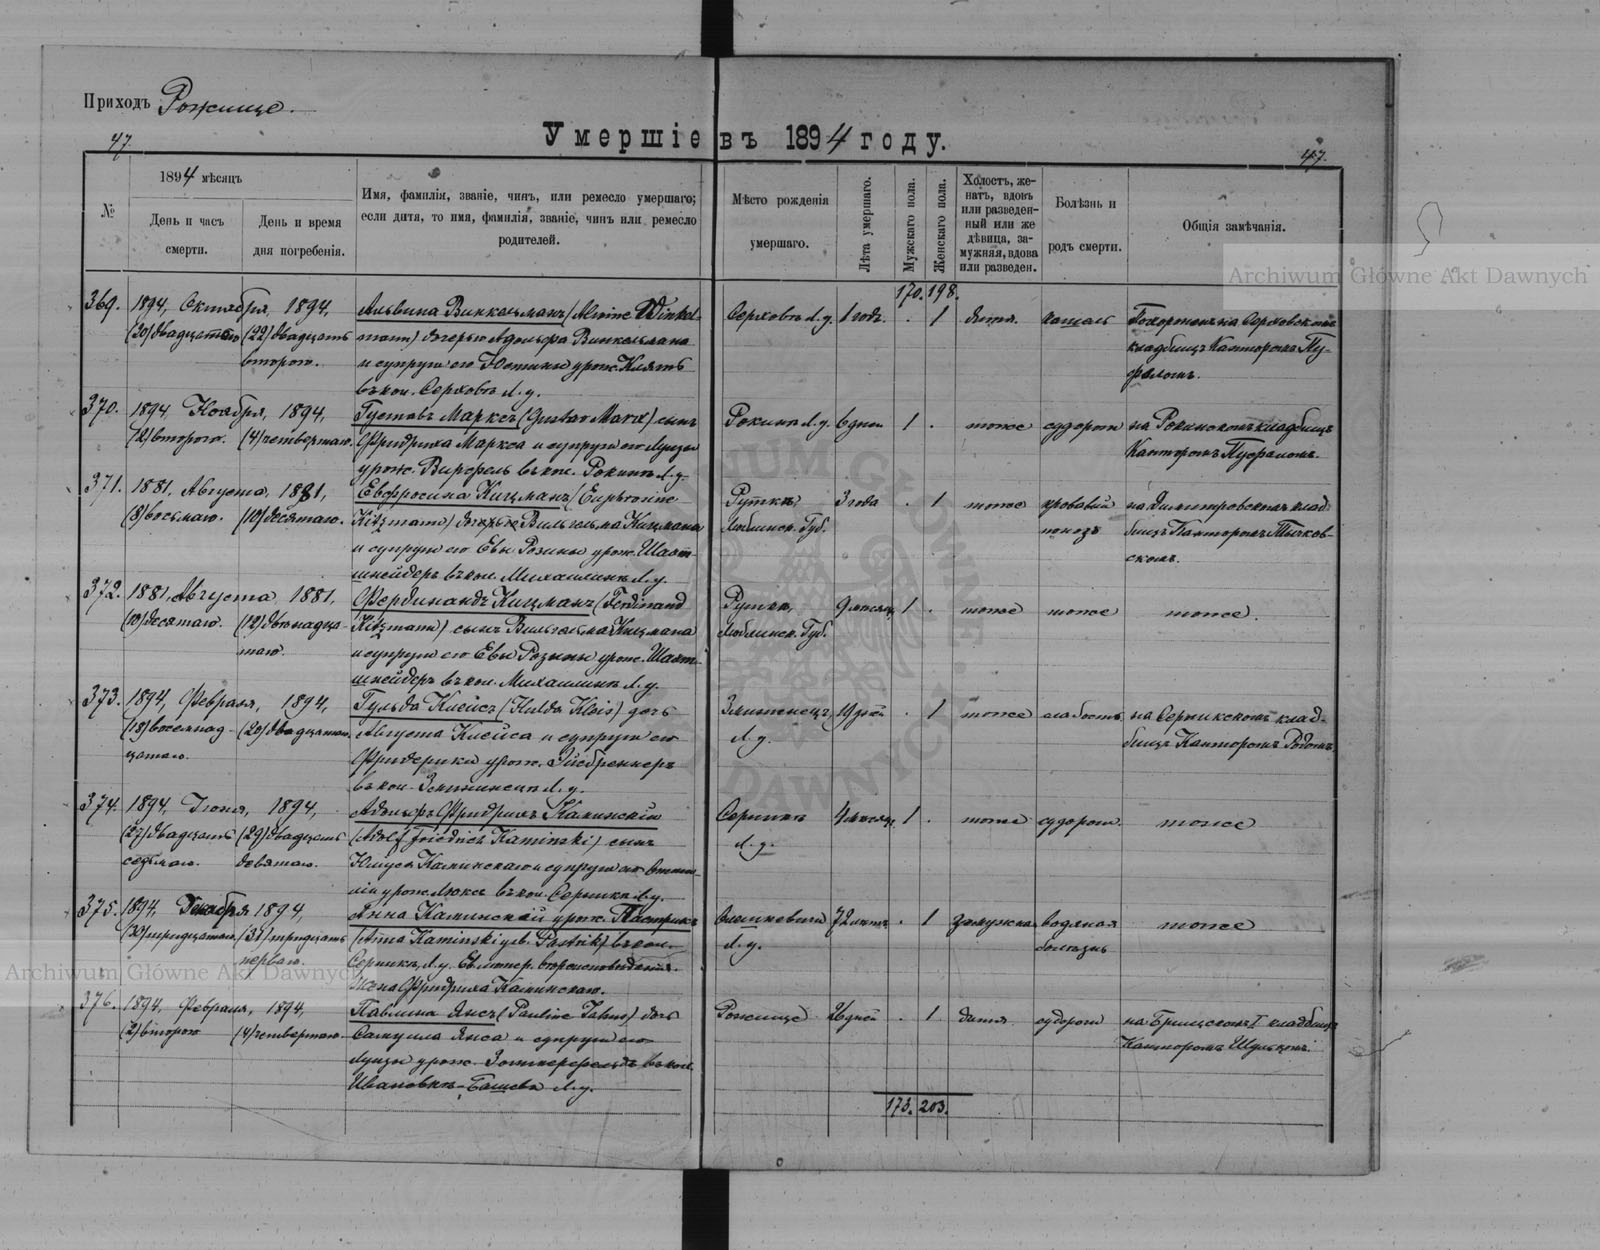 Приходъ Рожище.
47.
Умершіе въ 1894 году.
47.
№
1894 мѣсяцъ
День и часъ смерти.
День и время дня погребенія.
Имя, фамилія, званіе, чинъ, или ремесло умершаго;
если дитя, то имя, фамилія, званіе, чинъ или ремесло
родителей.
Мѣсто рожденія
умершаго.
Лѣта умершаго.
Мужскаго пола.
Женскаго пола.
Холостъ, же-
натъ, вдовъ
или разведен-
ный или же
дѣвица, за-
мужняя, вдова
или разведен.
Болѣзнь и
родъ смерти.
Общія замѣчанія.
170. 198.
369. 1894, Октября, 1894, Альвина Винкельманъ (Alwine Winkel- Серховъ Л.у. 1 годъ . 1 дитя. кашель Похоронена на Серховскомъ
(20) двадцатаго (22) двадцать mann) дочерью Адольфа Винкельмана кладбищѣ Канторомъ
второго. и супруги его Юстины урож. Клятъ
въ кол. Серховъ Л.у.
370. 1894 Ноября, 1894, Густавъ Марксъ (Gustav Marx) сынъ Рокини Л.у. 6 дней 1 . тоже судороги на Рокинскомъ кладбищѣ
(2) второго. (4) четвертаго. Фридриха Маркса и супруги его Луизы Канторомъ
урож. въ кол. Рокини Л.у.
371. 1881, Августа, 1881, Евфросина Кицманъ (Euphrosine Рутки, 3 года . 1 тоже кровавый на Димитровскомъ клад-
(8) восьмаго. (10) десятаго. Kitzmann) дочь Вильгельма Кицмана Люблинск. Губ. поносъ бищѣ Канторомъ
и супруги его Евы Розины урож. Шатт- скомъ.
шнейдеръ въ кол. Михаилинъ Л.у.
372. 1881, Августа 1881, Фердинандъ Кицманъ (Ferdinand Рутки, 9 мѣсяц. 1 . тоже тоже тоже.
(10) десятаго. (12) двѣнадца- Kitzmann) сынъ Вильгельма Кицмана Люблинск. Губ.
таго. и супруги его Евы Розины урож. Шатт-
шнейдеръ въ кол. Михаилинъ Л.у.
373. 1894, Февраля, 1894, Гульда Клейсъ (Hulda Kleis) дочь 19 дней . 1 тоже слабость на Серникскомъ клад-
(18) восемнад- (20) двадцатаго. Августа Клейса и супруги его Л.у. бищѣ Канторомъ
цатаго. Фридерики урож.
въ кол. Л.у.
374. 1894, Іюня, 1894, Адольфъ Фридрихъ Каминскій Серники 4 мѣсяц. 1 . тоже судороги. тоже
(27) двадцать (29) двадцать (Adolf Friedrich Kaminski) сынъ Л.у.
седьмаго. девятаго. Юлиуса Каминскаго и супруги его
урож. Люксъ въ кол. Серники Л.у.
375. 1894, Декабря 1894, Анна Каминскій урож. Пастрикъ Л.у. 72 лѣтъ . 1 замужняя водяная тоже
(30) тридцатаго (31) тридцать (Anna Kaminski geb. Pastrik) въ кол. болѣзнь
перваго. Серники, Л.у. вѣроисповѣданія.
Жена Фридриха Каминскаго.
376. 1894, Февраля, 1894, Павлина Янсъ (Pauline Jahns) дочь Рожище 26 дней . 1 дитя судороги на кладбищѣ
(2) второго (4) четвертаго. Самуила Янса и супруги его Канторомъ
Луизы урож. въ кол.
Ивановка-Башева Л.у.
173. 203.
Archiwum Główne Akt Dawnych
Archiwum Główne Akt Dawnych